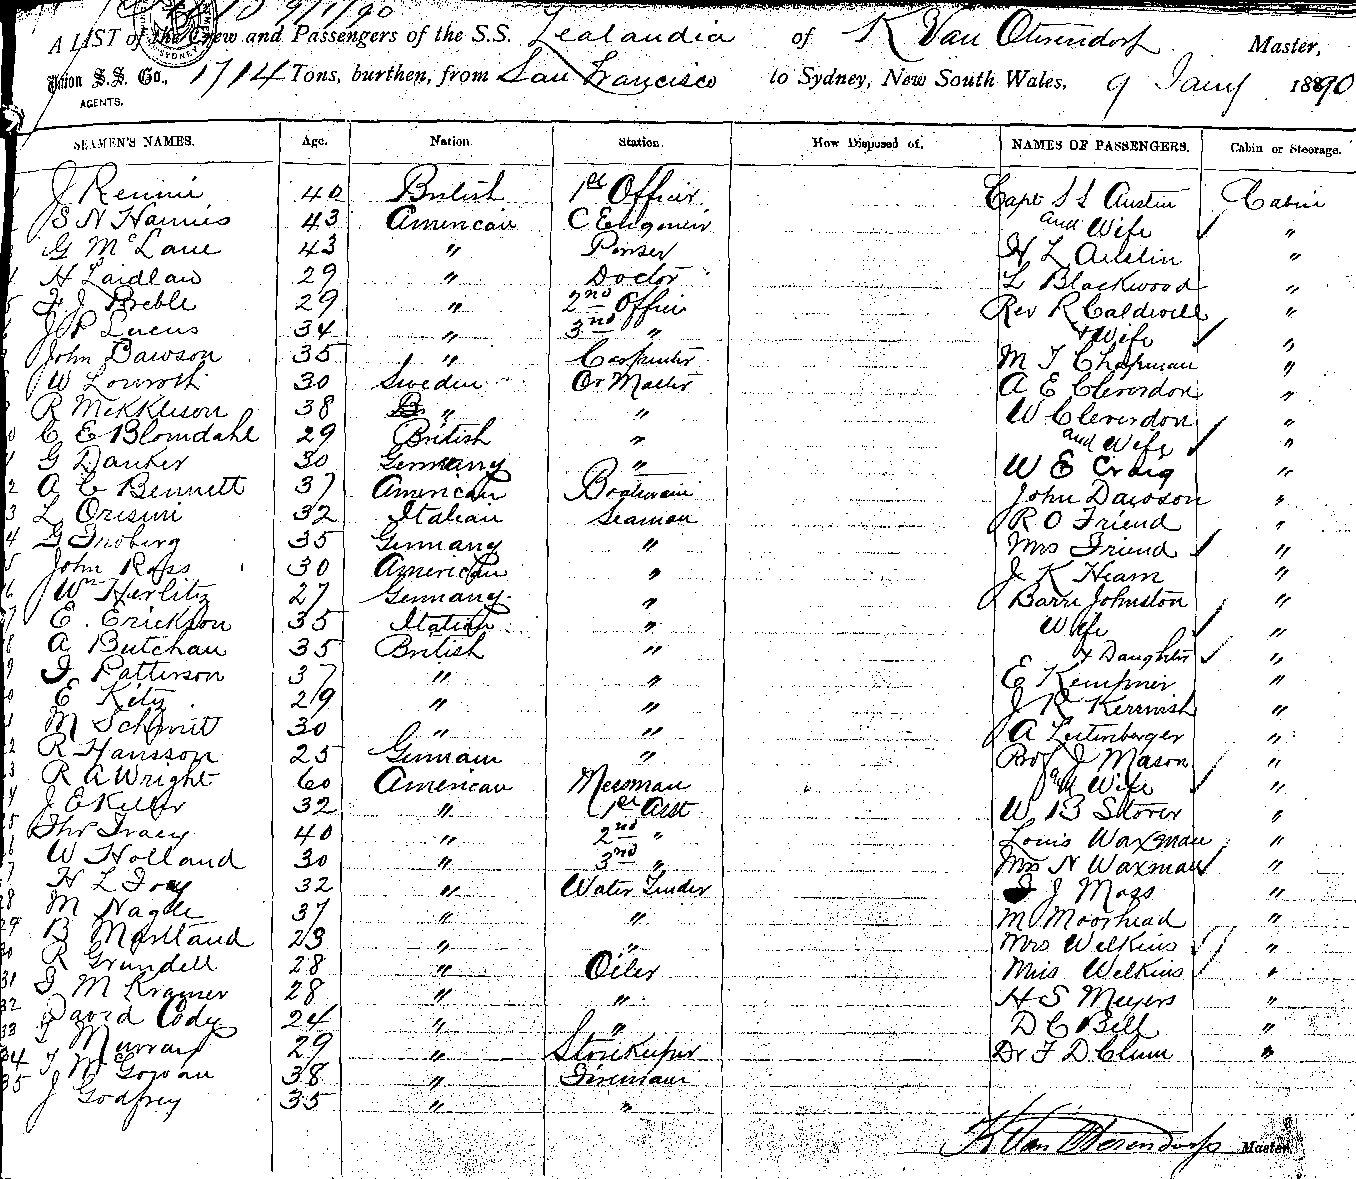 9/1/90
A LIST of the Crew and Passengers of the S.S. Zealandia of K Van Oterendorp Master,
Union S.S. Co., 1714 Tons, burthen, from San Francisco to Sydney, New South Wales, 9 Jany 1890
AGENTS.
SEAMEN'S NAMES. Age. Nation. Station. How Disposed of. NAMES OF PASSENGERS. Cabin or Steerage.
J Rennie 40 British 1st Officer Capt S L Austin Cabin
S N Harries 43 American C Engineer and Wife "
G McLane 43 " Purser H L Austin "
H Laidlaw 29 " Doctor L Blackwood "
F J Preble 29 " 2nd Officer Rev R Caldwell "
J P Lucus 34 " 3rd " & Wife "
John Dawson 35 " Carpenter M T Chapman "
W Lowroth 30 Sweden Qr Master A E Cleverdon "
R Mikkleson 38 " " W Cleverdon "
C E Blomdahl 29 British " and Wife "
G Danker 30 Germany " W E Craig "
A C Bennett 37 American Boatswain John Dawson "
L Orisini 32 Italian Seaman R O Friend "
G 35 Germany " Mrs Friend "
John Ross 30 American " J K Hearn "
Wm Herlitz 27 Germany " Barri Johnston "
E. Erickson 35 Italian " Wife "
A Butchau 35 British " & Daughter "
J Patterson 37 " " E Kempner "
E Kitz 29 " " J R Kerrwish "
M Schmitt 30 " " A Leitenberger "
R Hansson 25 German " Prof J Mason "
R A Wright 60 American Messman and Wife "
J E Killer 32 " 1st Asst W B Storer "
Thos Tracy 40 " 2nd " Louis Waxman "
W Holland 30 " 3rd " Mrs N Waxman "
H L Foey 32 " Water Tender J Moss "
M Nagle 37 " " M Moorhead "
B Maitland 23 " " Mrs Wilkins "
R Grundell 28 " Oiler Miss Wilkins "
J M Kramer 28 " " H S Meyers "
David Cody 24 " " D C Bell "
T Murray 29 " Storekeeper Dr F D Clum "
T McGowan 38 " Fireman
J Godfrey 35 " "
K Van Oterendorp Master.